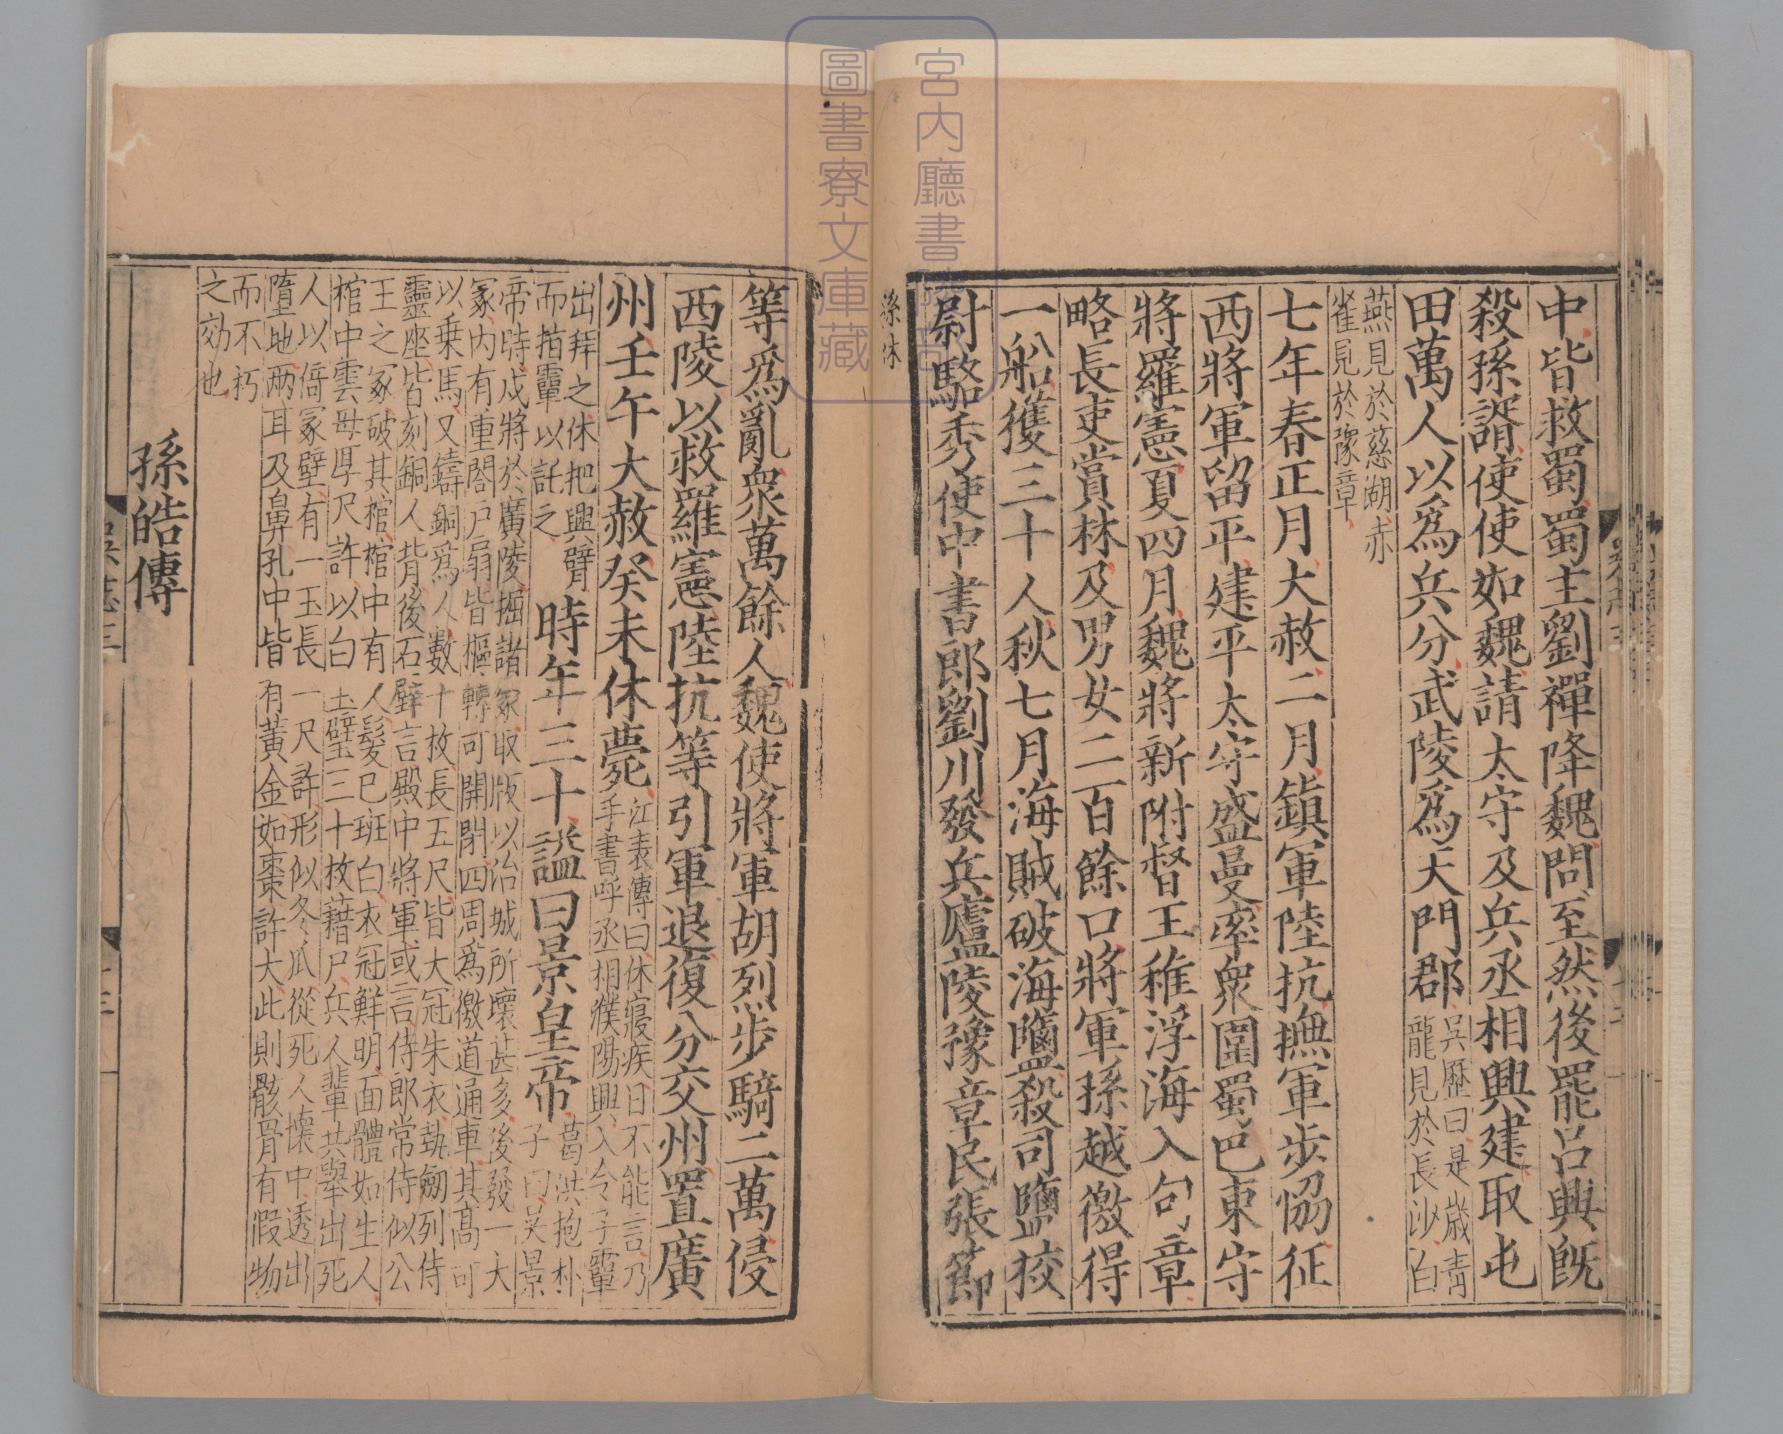 中皆救蜀蜀主劉禪降魏問至然後罷呂興既
殺孫諝使使如魏請太守及兵丞相興建取屯
田萬人以爲兵分武陵爲天門郡
吳歷曰是歲青
龍見於長沙白
燕見於慈湖赤
雀見於豫章
七年春正月大赦二月鎮軍陸抗撫軍步協征
西將軍留平建平太守盛曼率衆圍蜀巴東守
將羅憲夏四月魏將新附督王稚浮海入句章
略長吏賞林及男女二百餘口將軍孫越徼得
一船獲三十人秋七月海賊破海鹽殺司鹽校
尉駱秀使中書郎劉川發兵廬陵豫章民張節
孫休
等爲亂衆萬餘人魏使將軍胡烈步騎二萬侵
西陵以救羅憲陸抗等引軍退復分交州置廣
州壬午大赦癸未休薨
江表傳曰休寢疾口不能言乃
手書呼丞相濮陽興入令子𩅦
出拜之休把興臂
而指𩅦以託之
時年三十謚曰景皇帝
葛洪抱朴
子曰吳景
帝時戍將於廣陵掘諸冢取版以治城所壞甚多後發一大
冢內有重閤戶扇皆樞轉可開閉四周爲徼道通車其高可
以乗馬又鑄銅爲人數十枚長五尺皆大冠朱衣執劒列侍
靈座皆刻銅人背後石壁言殿中將軍或言侍郎常侍似公
王之冢破其棺棺中有人髮已班白衣冠鮮明面體如生人
棺中雲母厚尺許以白玉璧三十枚藉尸兵人輩共舉出死
人以倚冢壁有一玉長一尺許形似冬瓜從死人懷中透出
墮地兩耳及鼻孔中皆有黃金如棗許大此則骸骨有假物
而不朽
之効也
孫皓傳
吳志三
宮内廳書陵部
圖書寮文庫藏